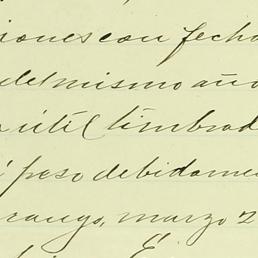 siones con fecha
del mismo año
útil timbrad
peso debidame
rango, marzo 2